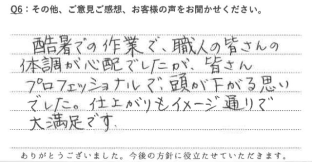 Q6：その他、ご意見ご感想、お客様の声をお聞かせください。
酷暑での作業で、職人の皆さんの
体調が心配でしたが、皆さん
プロフェッショナルで、頭が下がる思い
でした。仕上がりもイメージ通りで
大満足です。
ありがとうございました。今後の方針に役立たせていただきます。